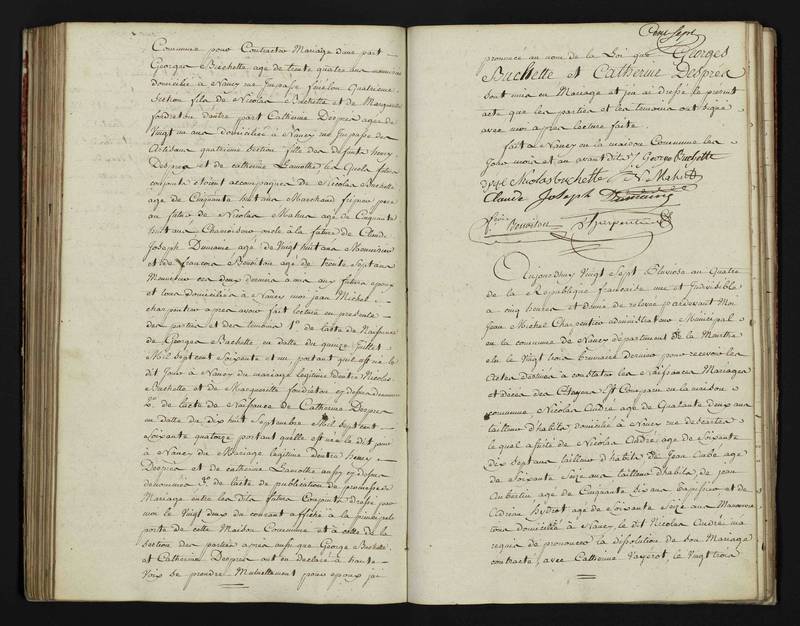 Commune pour Contracter Mariage d'une part
Georges Buchette age de trente quatre ans
domicilié à Nancy rue Impasse quatrieme
Section fils de Nicolas Buchette et de Marguerite
d'autre part Catherine Despres agée de
Vingt un ans domiciliée à Nancy rue Impasse des
Artisans quatrieme Section fille des defunts henry
Despres et de catherine Lamothe, les quels futurs
conjoints etoient accompagnés de Nicolas Buchette
age de Cinquante huit ans Marchand fripier pere
au futur, de Nicolas Mahu age de Cinquante
huit ans Charcutier oncle à la future de Claude
Joseph age de Vingt huit ans Menuisier
et de francois Benoiton age de trente Sept ans
Menuisier ces deux derniers amis aux futurs epoux
et tous domiciliés à Nancy moi jean Michel
charpentier apres avoir fait lecture en presence
des parties et des temoins 1o de l'acte de Naissance
de Georges Buchette en datte du quinze juillet
Mil sept cent Soixante et un portant qu'il est né le
dit jour à Nancy du mariage legitime d'entre Nicolas
Buchette et de Marguerite
2o de l'acte de Naissance de Catherine Despres
en datte du dix huit Septembre Mil Sept cent
Soixante quatorze portant qu'elle est née le dit jour
à Nancy du Mariage legitime d'entre henry
Despres et de catherine Lamothe aussy
denommés 3o de l'acte de publication de promesses de
Mariage entre les dits futurs Conjoints dressé par
moi le Vingt deux du courant affiché à la principale
porte de cette Maison Commune et à celle de la
Section des parties apres aussy que George Buchette
et Catherine Despres ont eu declaré à haute
Voix se prendre Mutuellement pour epoux j'ai
Cent Sept
prononcé au nom de la Loi que Georges
Buchette et Catherine Despres
sont unis en Mariage et j'ai dressé le present
acte que les parties et les temoins ont signé
avec moi apres lecture faite
fait à Nancy en la maison Commune les
Jour mois et an avant dits George Buchette
Nicolas buchette N Mahu
Claude Joseph
Benoiton Charpentier
Aujourdhuy Vingt Sept Pluviose an Quatre
de la Republique francaise une et Indivisible
a cinq heures et demie de relevée pardevant Moi
Jean Michel Charpentier administrateur Municipal
en la commune de Nancy departement de la Meurthe
elu le Vingt trois brumaire dernier pour recevoir les
Actes destinés à constater les Naissances Mariages
et deces des Citoyens Est Comparu en la maison
commune, Nicolas André age de Quarante deux ans
tailleur d'habits domicilié à Nancy rue descartes
le quel assisté de Nicolas André age de Soixante
dix sept ans tailleur d'habits de Jean Cabe age
de Soixante Seize ans tailleur d'habits, de jean
Aubertin age de Cinquante six ans tapissier et de
age de Soixante Seize ans
tous domiciliés à Nancy le dit Nicolas André m'a
requis de prononcer la dissolution de son Mariage
contracté, avec Catherine le Vingt trois